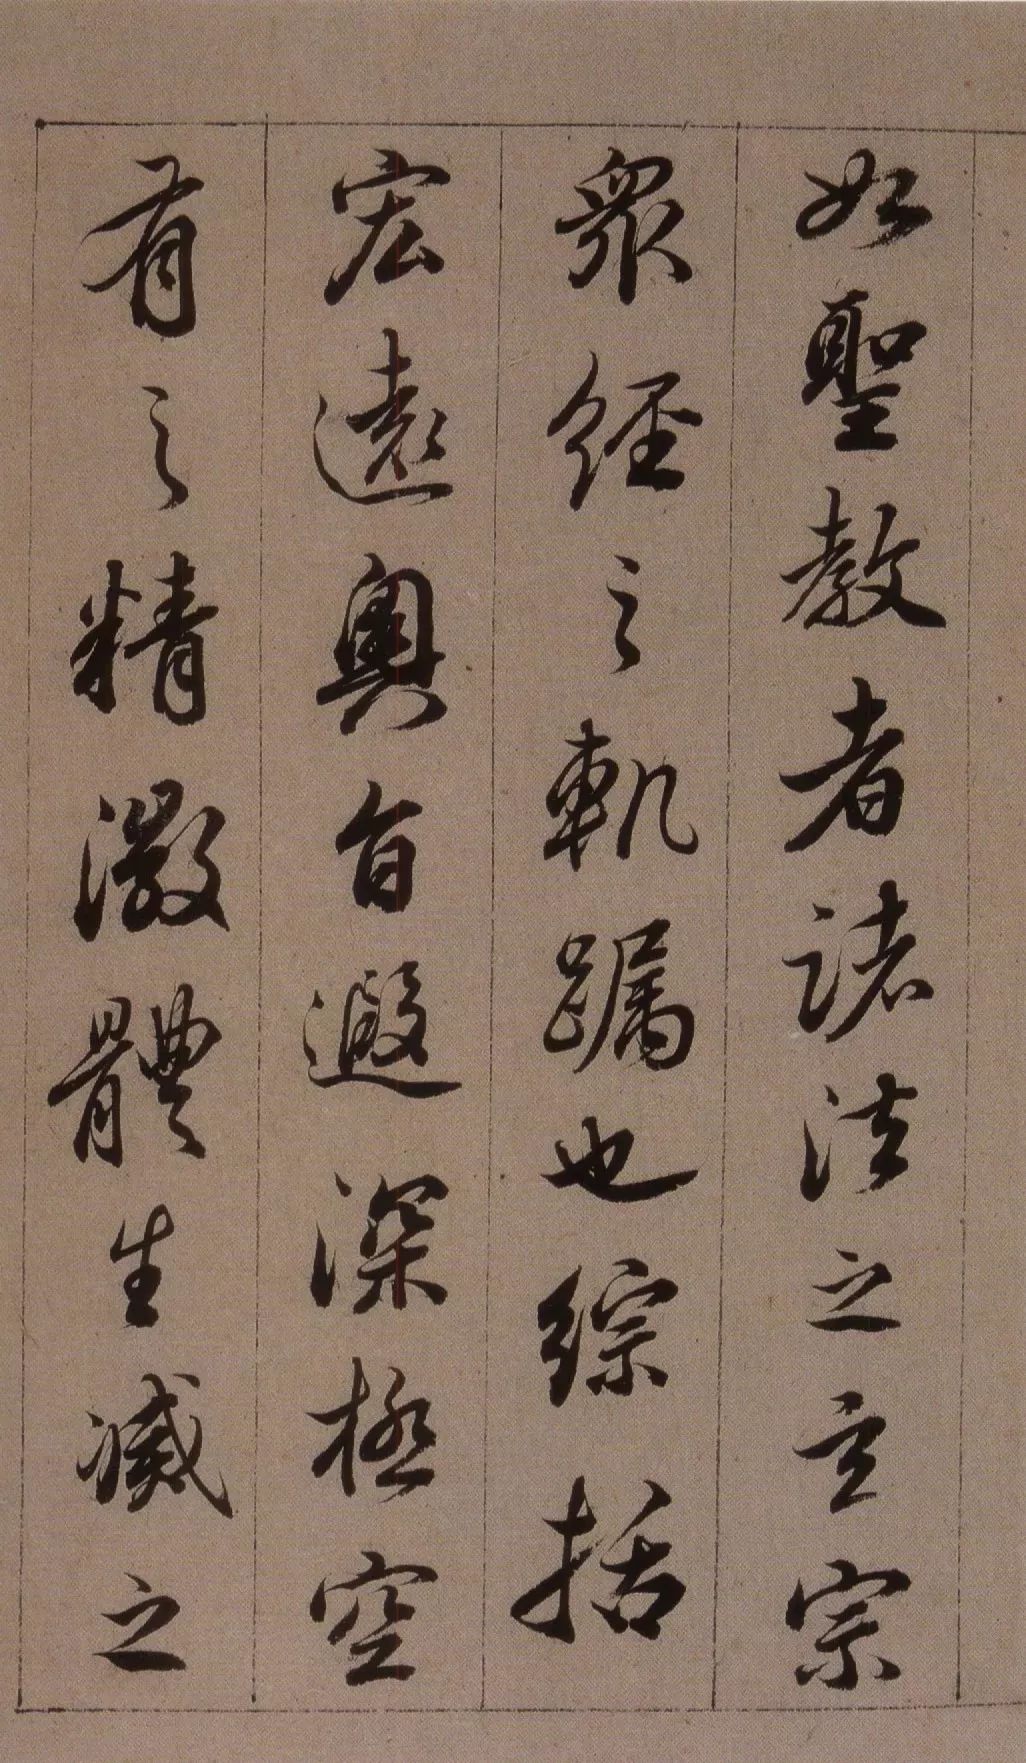 如聖教者諸法之玄宗
眾經之軌躅也綜括
宏遠奧旨遐深極空
有之精微體生滅之